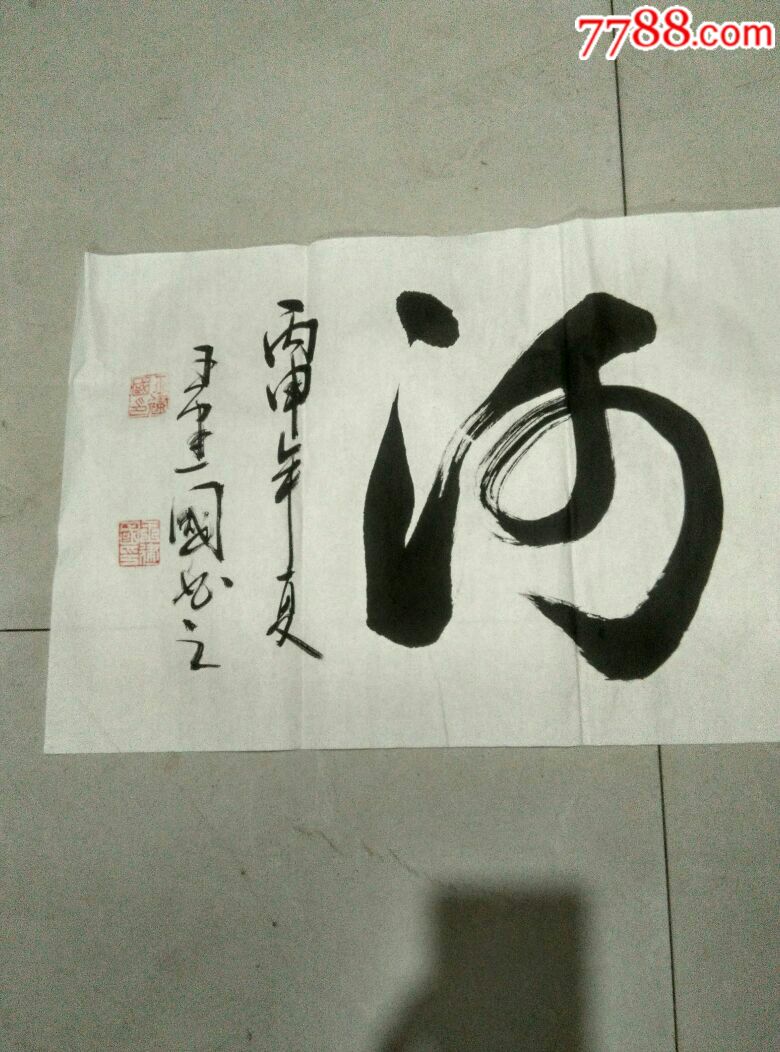 7788.com
河
丙申年夏
王建國書之